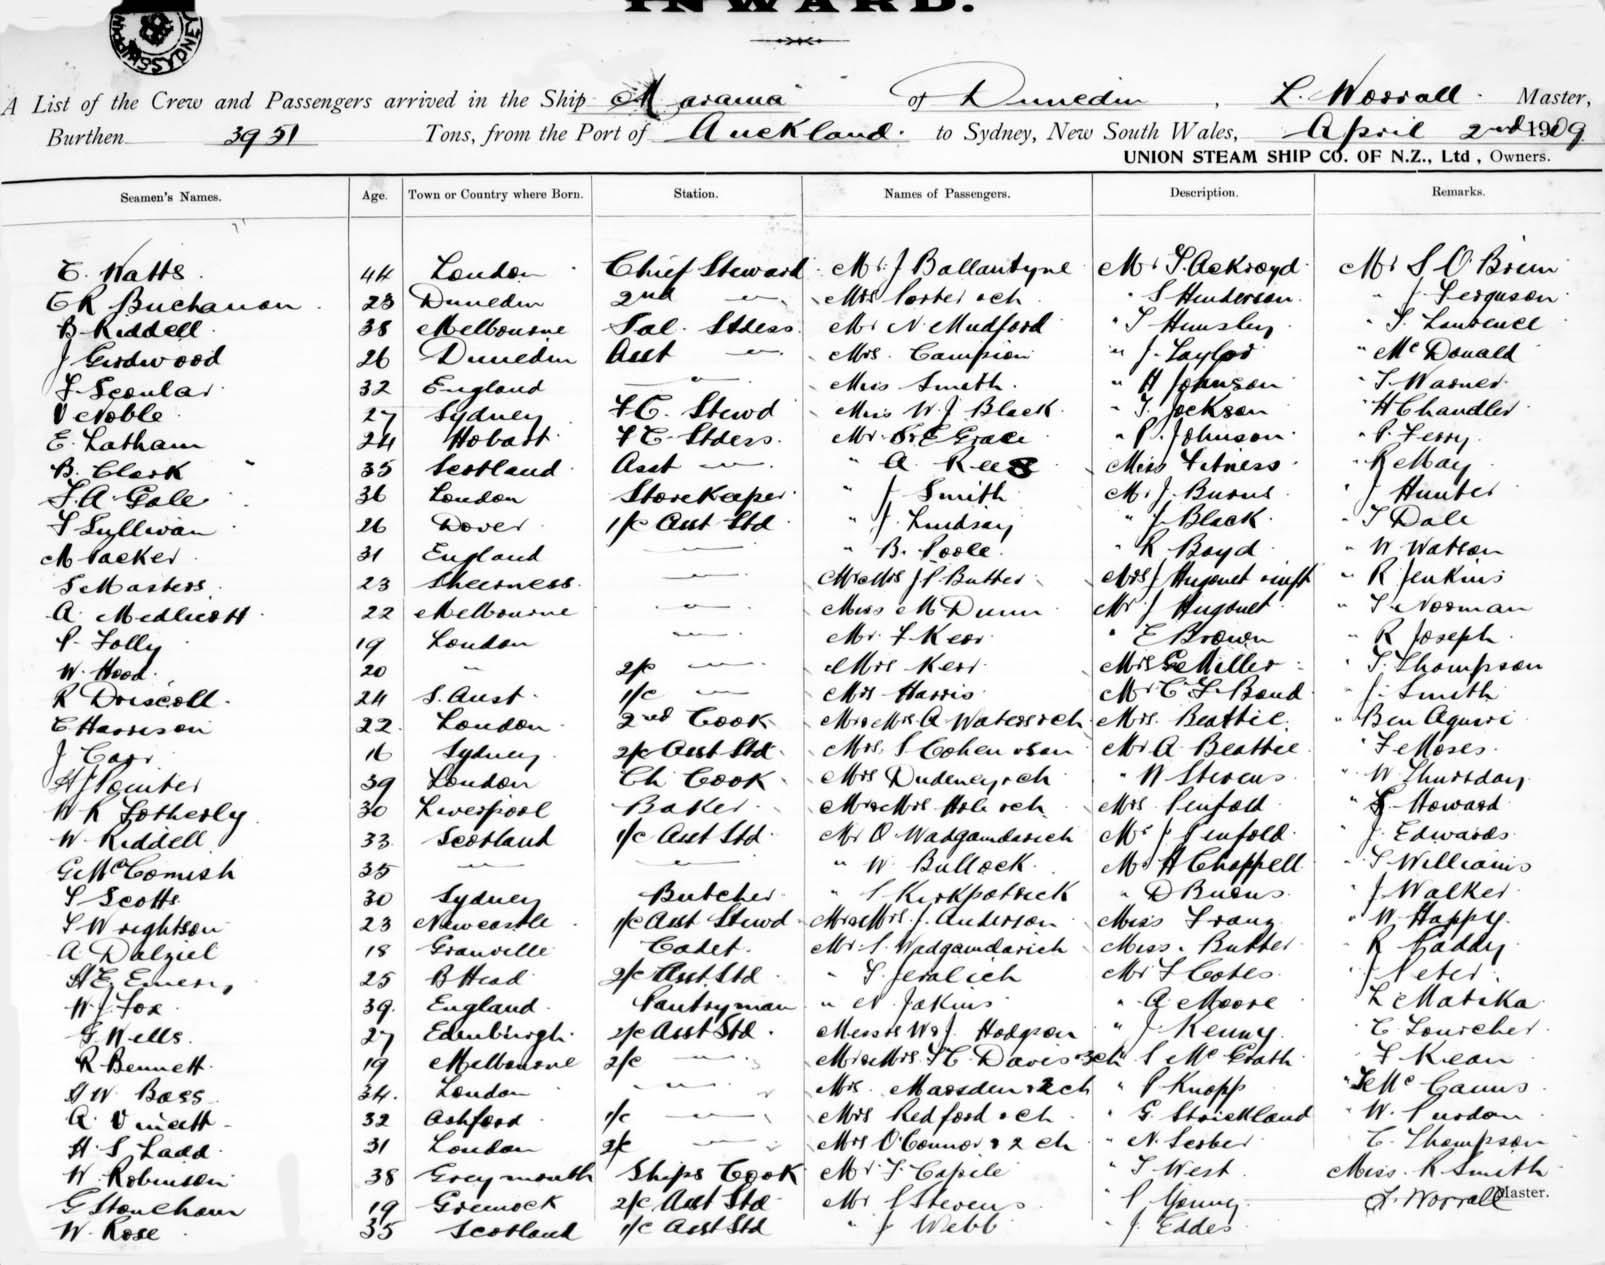 INWARD.
SHIPPING SYDNEY
A List of the Crew and Passengers arrived in the Ship Marama of Dunedin, L. Worrall. Master,
Burthen 3951 Tons, from the Port of Auckland. to Sydney, New South Wales, April 2nd 1909
UNION STEAM SHIP CO. OF N.Z., Ltd, Owners.
Seamen's Names. Age. Town or Country where Born. Station. Names of Passengers. Description. Remarks.
E. Watts. 44 London Chief Steward Mr. J Ballantyne Mr. T. Ackroyd Mr S O'Brien
E R Buchanan. 23 Dunedin 2nd — Mrs Porter & ch " S Henderson " J. Ferguson
B. Riddell. 38 Melbourne Sal. Stdess. Mr N Mudford " T Hunsley " T. Lawrence
J Girdwood 26 Dunedin Asst — Mrs. Campion " J. Taylor " McDonald
F. Scoular 32 England — Miss Smith. " H Johnson " T. Warner
V Noble 27 Sydney F.C. Stewd Miss W. J. Black " T. Jackson " H Chandler
E. Latham 24 Hobart F C. Stdess. Mr. E Grace " P. Johnson " P. Ferry
B. Clark " 35 Scotland Asst — " A Rees Miss Fitness " R May
F. A. Gale 36 London Storekeeper " J Smith Mr J. Burns " J Hunter
T Sullivan 26 Dover 1/c Asst Std " J. Lindsay " J. Black " T Dale
M Packer 31 England — " B. Poole " R Boyd " W Watson
S Masters 23 Sheerness — Mr & Mrs J P Butter Mrs J Hugonet & inft " R Jenkins
A. Medlicott 22 Melbourne — Miss M Dunn Mr J Hugonet " T. Norman
P. Jolly 19 London — Mr. F Kerr " E Brown " R Joseph
W. Hood 20 " 2/c — Mrs Kerr Mrs G Miller " T. Thompson
R Driscoll. 24 S. Aust. 1/c — Mrs Harris Mr C F. Bond " J. Smith
C Harrison 22 London 2nd Cook Mr & Mrs A Waters & ch Mrs. Beattie " Ben Aguiri
J Carr 16 Sydney 2/c Asst Std Mrs S Cohen & son Mr A Beattie " F Moses
H J Painter 39 London Ch Cook Mrs Dudeney & ch " W Stevens " W Thursday
W R Fotherly 30 Liverpool Baker Mr & Mrs Hole & ch Mrs. Penfold " S. Howard
W. Riddell 33 Scotland 1/c Asst Std Mr O Wadgamdarich Mr J Penfold " J. Edwards
G McComish 35 — — " W. Bullock. Mr H Chappell " T Williams
T Scotts. 30 Sydney Butcher " S Kirkpatrick " D Burns " J Walker
T Wrightson 23 Newcastle 1/c Asst Stewd Mr & Mrs. J. Anderson Miss Franz " W. Happy
A Dalziel 18 Granville Cadet. Mr S. Wadgamdarich Miss. Butter " R Paddy
H E Emery 25 B Head 2/c Asst. Std " T. Jeralich Mr F Cotes " J Peter
W. J. Fox 39. England Pantryman " N Jakins " A Moore L Matika
G Wells. 27 Edinburgh 2/c Asst Std. Messrs W & J. Hodgson " J. Kenny " C Lourcher
R Bennett. 19 Melbourne 2/c — Mr & Mrs. F C. Davis & 3 ch " S McGrath " F Kean
H W Bass 34. London — Mrs. Marsden & 2 ch " P Knopp " McCanns
A. Vincett 32 Ashford 1/c — Mrs Redford & ch " G. Strickland " W. Purdon
H. S Ladd 31 London 2/c — Mrs O'Connor & 2 ch " N. Serber " C. Thompson
W. Robinson 38 Greymouth Ships Cook Mr F Capile " T West Miss. R. Smith
G Stoneham 19 Greenock 2/c Asst Std Mr S Stevens " P Young L. Worrall Master.
W. Rose 35 Scotland 1/c Asst Std " J Webb " J. Eddes